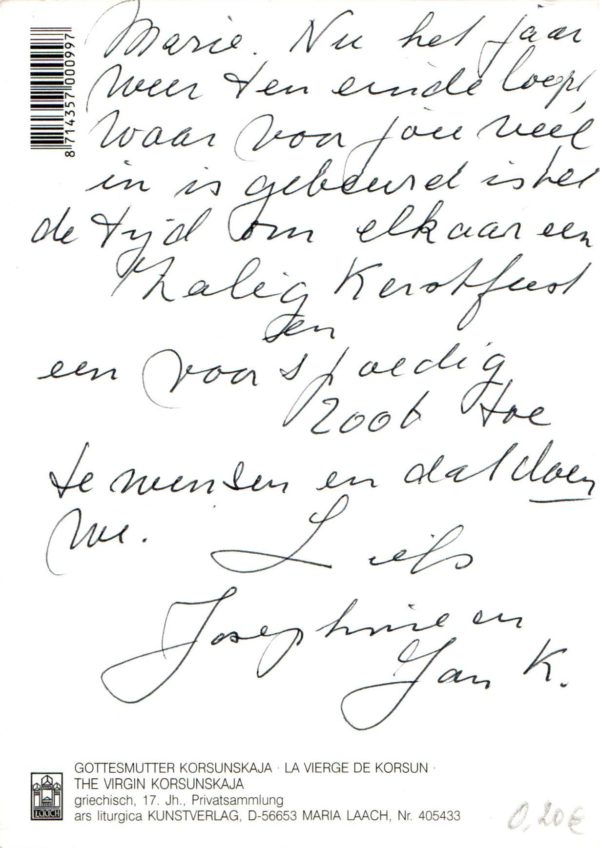 Marie. Nu het jaar
weer ten einde loopt,
waar voor jou veel
in is gebeurd is het
de tijd om elkaar een
Zalig Kerstfeest
en
een voorspoedig
2006 toe
te wensen en dat doen
we. Liefs
Josephine en
Jan K.
8 714357 000997
GOTTESMUTTER KORSUNSKAJA · LA VIERGE DE KORSUN ·
THE VIRGIN KORSUNSKAJA
griechisch, 17. Jh., Privatsammlung
ars liturgica KUNSTVERLAG, D-56653 MARIA LAACH, Nr. 405433
LAACH
0,20€